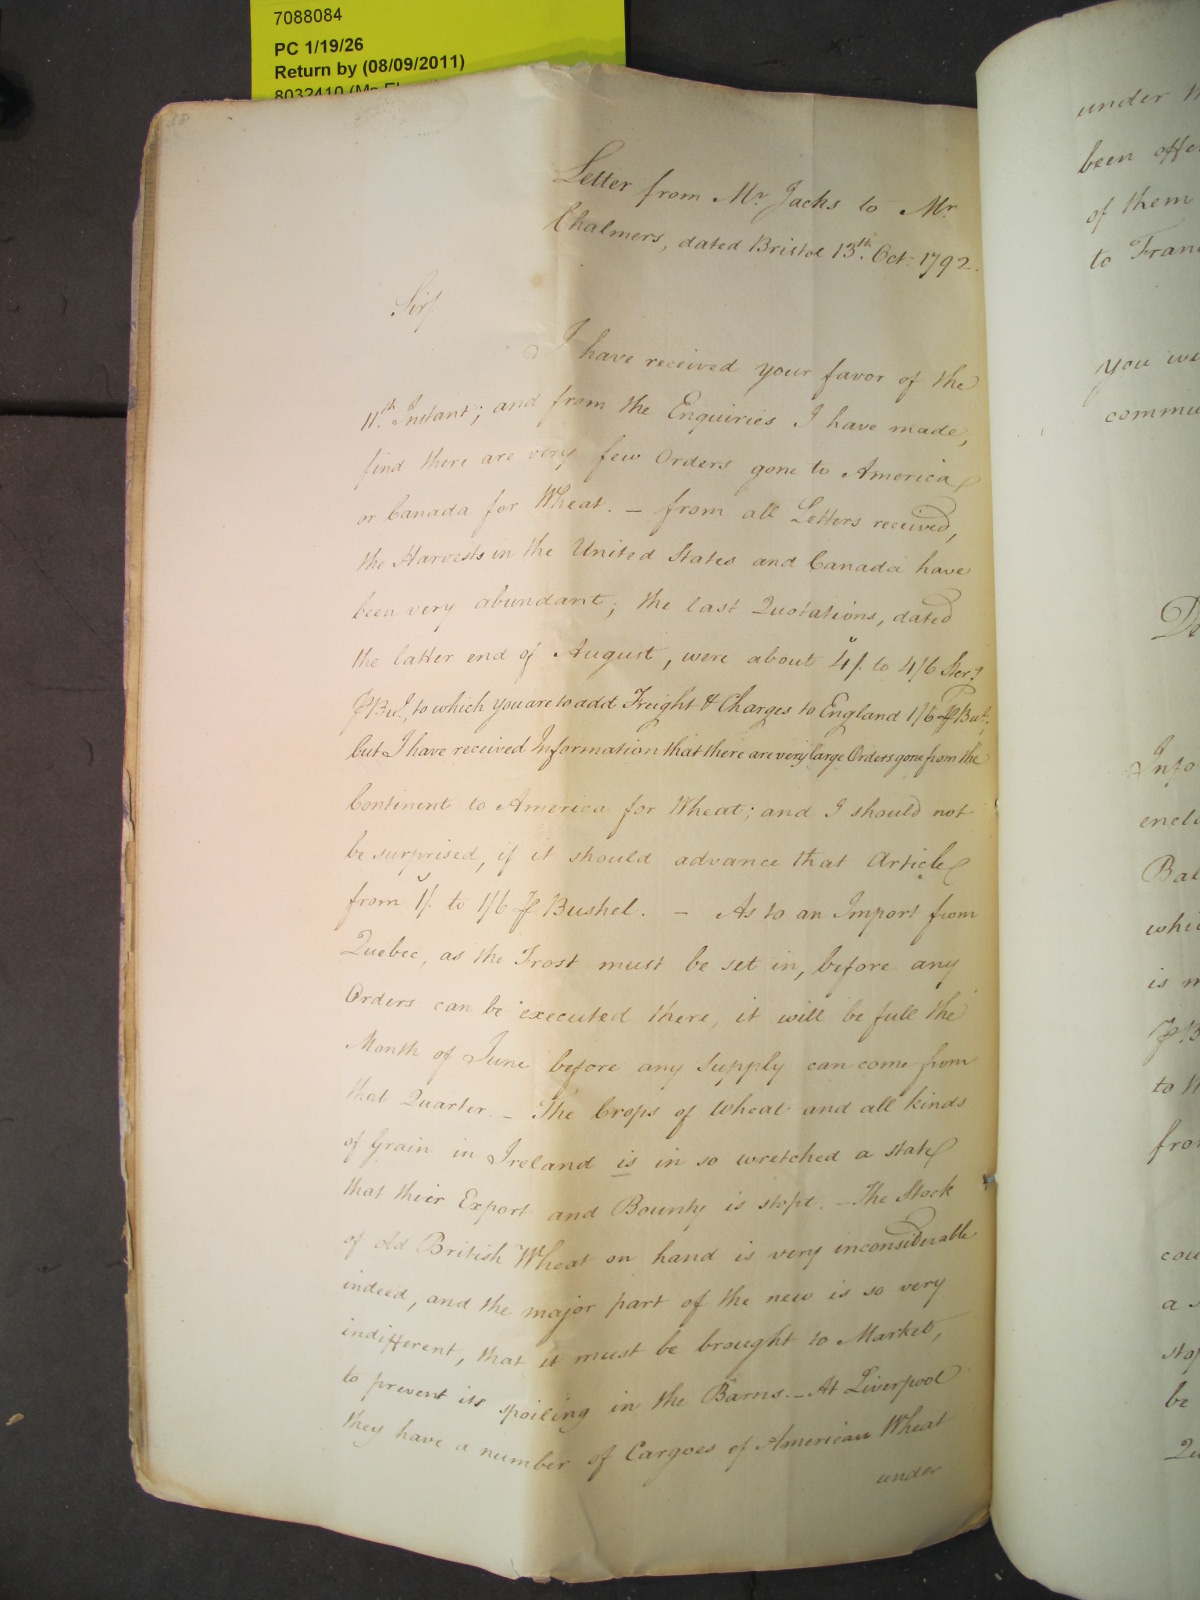 7088084
PC 1/19/26
Return by (08/09/2011)
8032410 (Ms
Letter from Mr. Jacks to Mr
Chalmers, dated Bristol 13th. Oct: 1792.
Sir/
I have received your favor of the
11th. Instant; and from the Enquiries I have made,
find there are very few Orders gone to America
or Canada for Wheat. – from all Letters received,
the Harvests in the United States and Canada have
been very abundant; the last Quotations, dated
the latter end of August, were about 4/. to 4/6 Ster:
⅌ Bul., to which you are to add Freight & Charges to England 1/6 ⅌ Bul.;
but I have received Information that there are very large Orders gone from the
Continent to America for Wheat; and I should not
be surprised, if it should advance that Article
from 1/. to 1/6 ⅌ Bushel. – As to an Import from
Quebec, as the Frost must be set in, before any
Orders can be executed there, it will be full the
Month of June before any Supply can come from
that Quarter. – The Crops of Wheat and all kinds
of Grain in Ireland is in so wretched a state
that their Export and Bounty is stopt. – The Stock
of old British Wheat on hand is very inconsiderable
indeed, and the major part of the new is so very
indifferent, that it must be brought to Market,
to prevent its spoiling in the Barns. – At Liverpool
they have a number of Cargoes of American Wheat
under
under
been
of them
to
you
is m
to
a
be